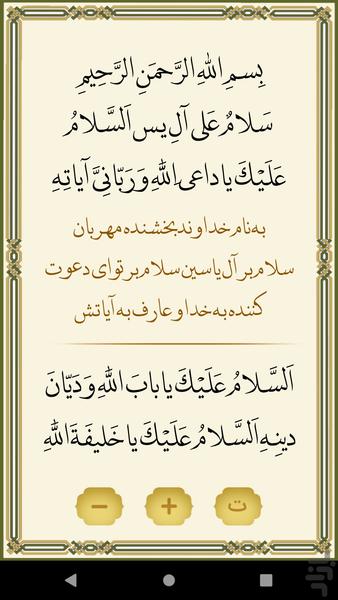 بِسمِ اللهِ الرَّحمَنِ الرَّحِیمِ
سَلامٌ عَلی آلِ یس اَلسَّلامُ
عَلَیْكَ یا داعی اللهِ وَ رَبّانِیَّ آیاتِهِ
به نام خداوند بخشنده مهربان
سلام بر آل یاسین سلام بر تو ای دعوت
کننده به خدا و عارف به آیاتش
اَلسَّلامُ عَلَیْكَ یا بابَ اللهِ وَ دَیّانَ
دینِهِ اَلسَّلامُ عَلَیْكَ یا خَلیفَةَ اللهِ
− + ت
بازار